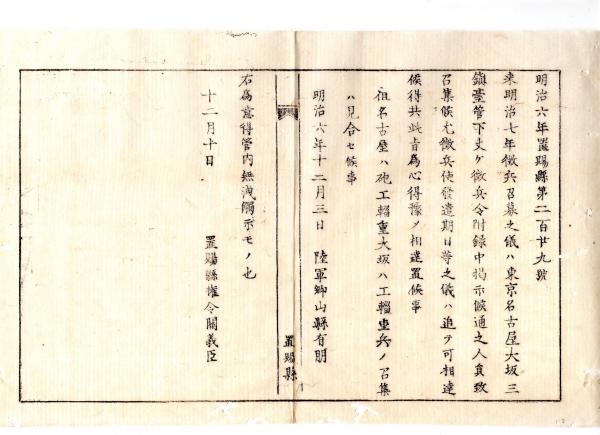 明治六年置賜縣第二百廿九號
来明治七年徴兵召募之儀ハ東京名古屋大坂三
鎮臺管下丈ケ徴兵令附録中掲示候通之人員致
召集候尤徴兵使發遣期日等之儀ハ追テ可相達
候得共此旨為心得豫メ相達置候事
但名古屋ハ砲工輜重大坂ハ工輜重兵ノ召集
ハ見合セ候事
明治六年十二月三日 陸軍卿山縣有朋
置賜縣
右為意得管内無洩觸示モノ也
十二月十日 置賜縣權令關義臣